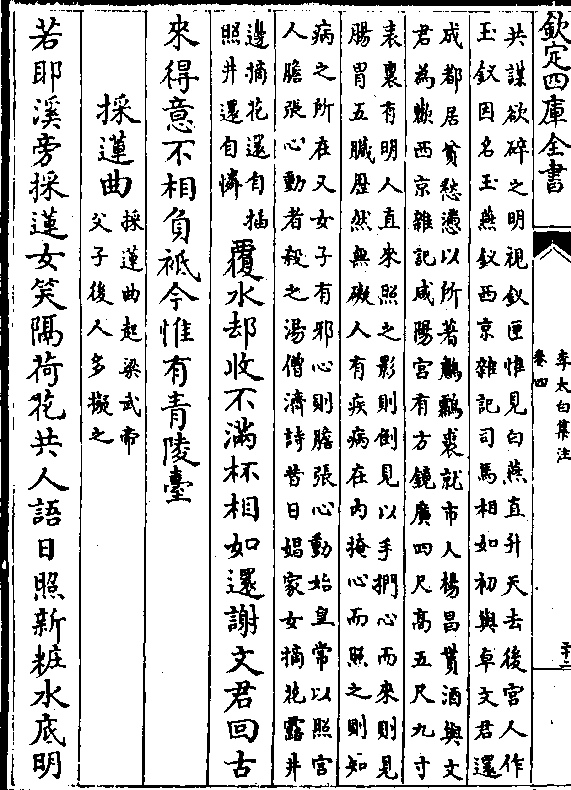 欽定四庫全書
李太白集注
卷四
二十二
共謀欲碎之明視釵匣惟見白燕直升天去後宮人作
玉釵因名玉燕釵西京雜記司馬相如初與卓文君還
成都居貧愁懣以所著鷫鸘裘就市人楊昌貰酒與文
君為歡西京雜記咸陽宮有方鏡廣四尺高五尺九寸
表裏有明人直來照之影則倒見以手捫心而來則見
腸胃五臟歴然無礙人有疾病在内掩心而照之則知
病之所在又女子有邪心則膽張心動始皇常以照宮
人膽張心動者殺之湯僧濟詩昔日娼家女摘花露井
邊摘花還自插
照井還自憐
覆水却收不滿杯相如還謝文君回古
來得意不相負祗今惟有青陵臺
採蓮曲
採蓮曲起梁武帝
父子後人多擬之
若耶溪旁採蓮女笑隔荷花共人語日照新粧水底明